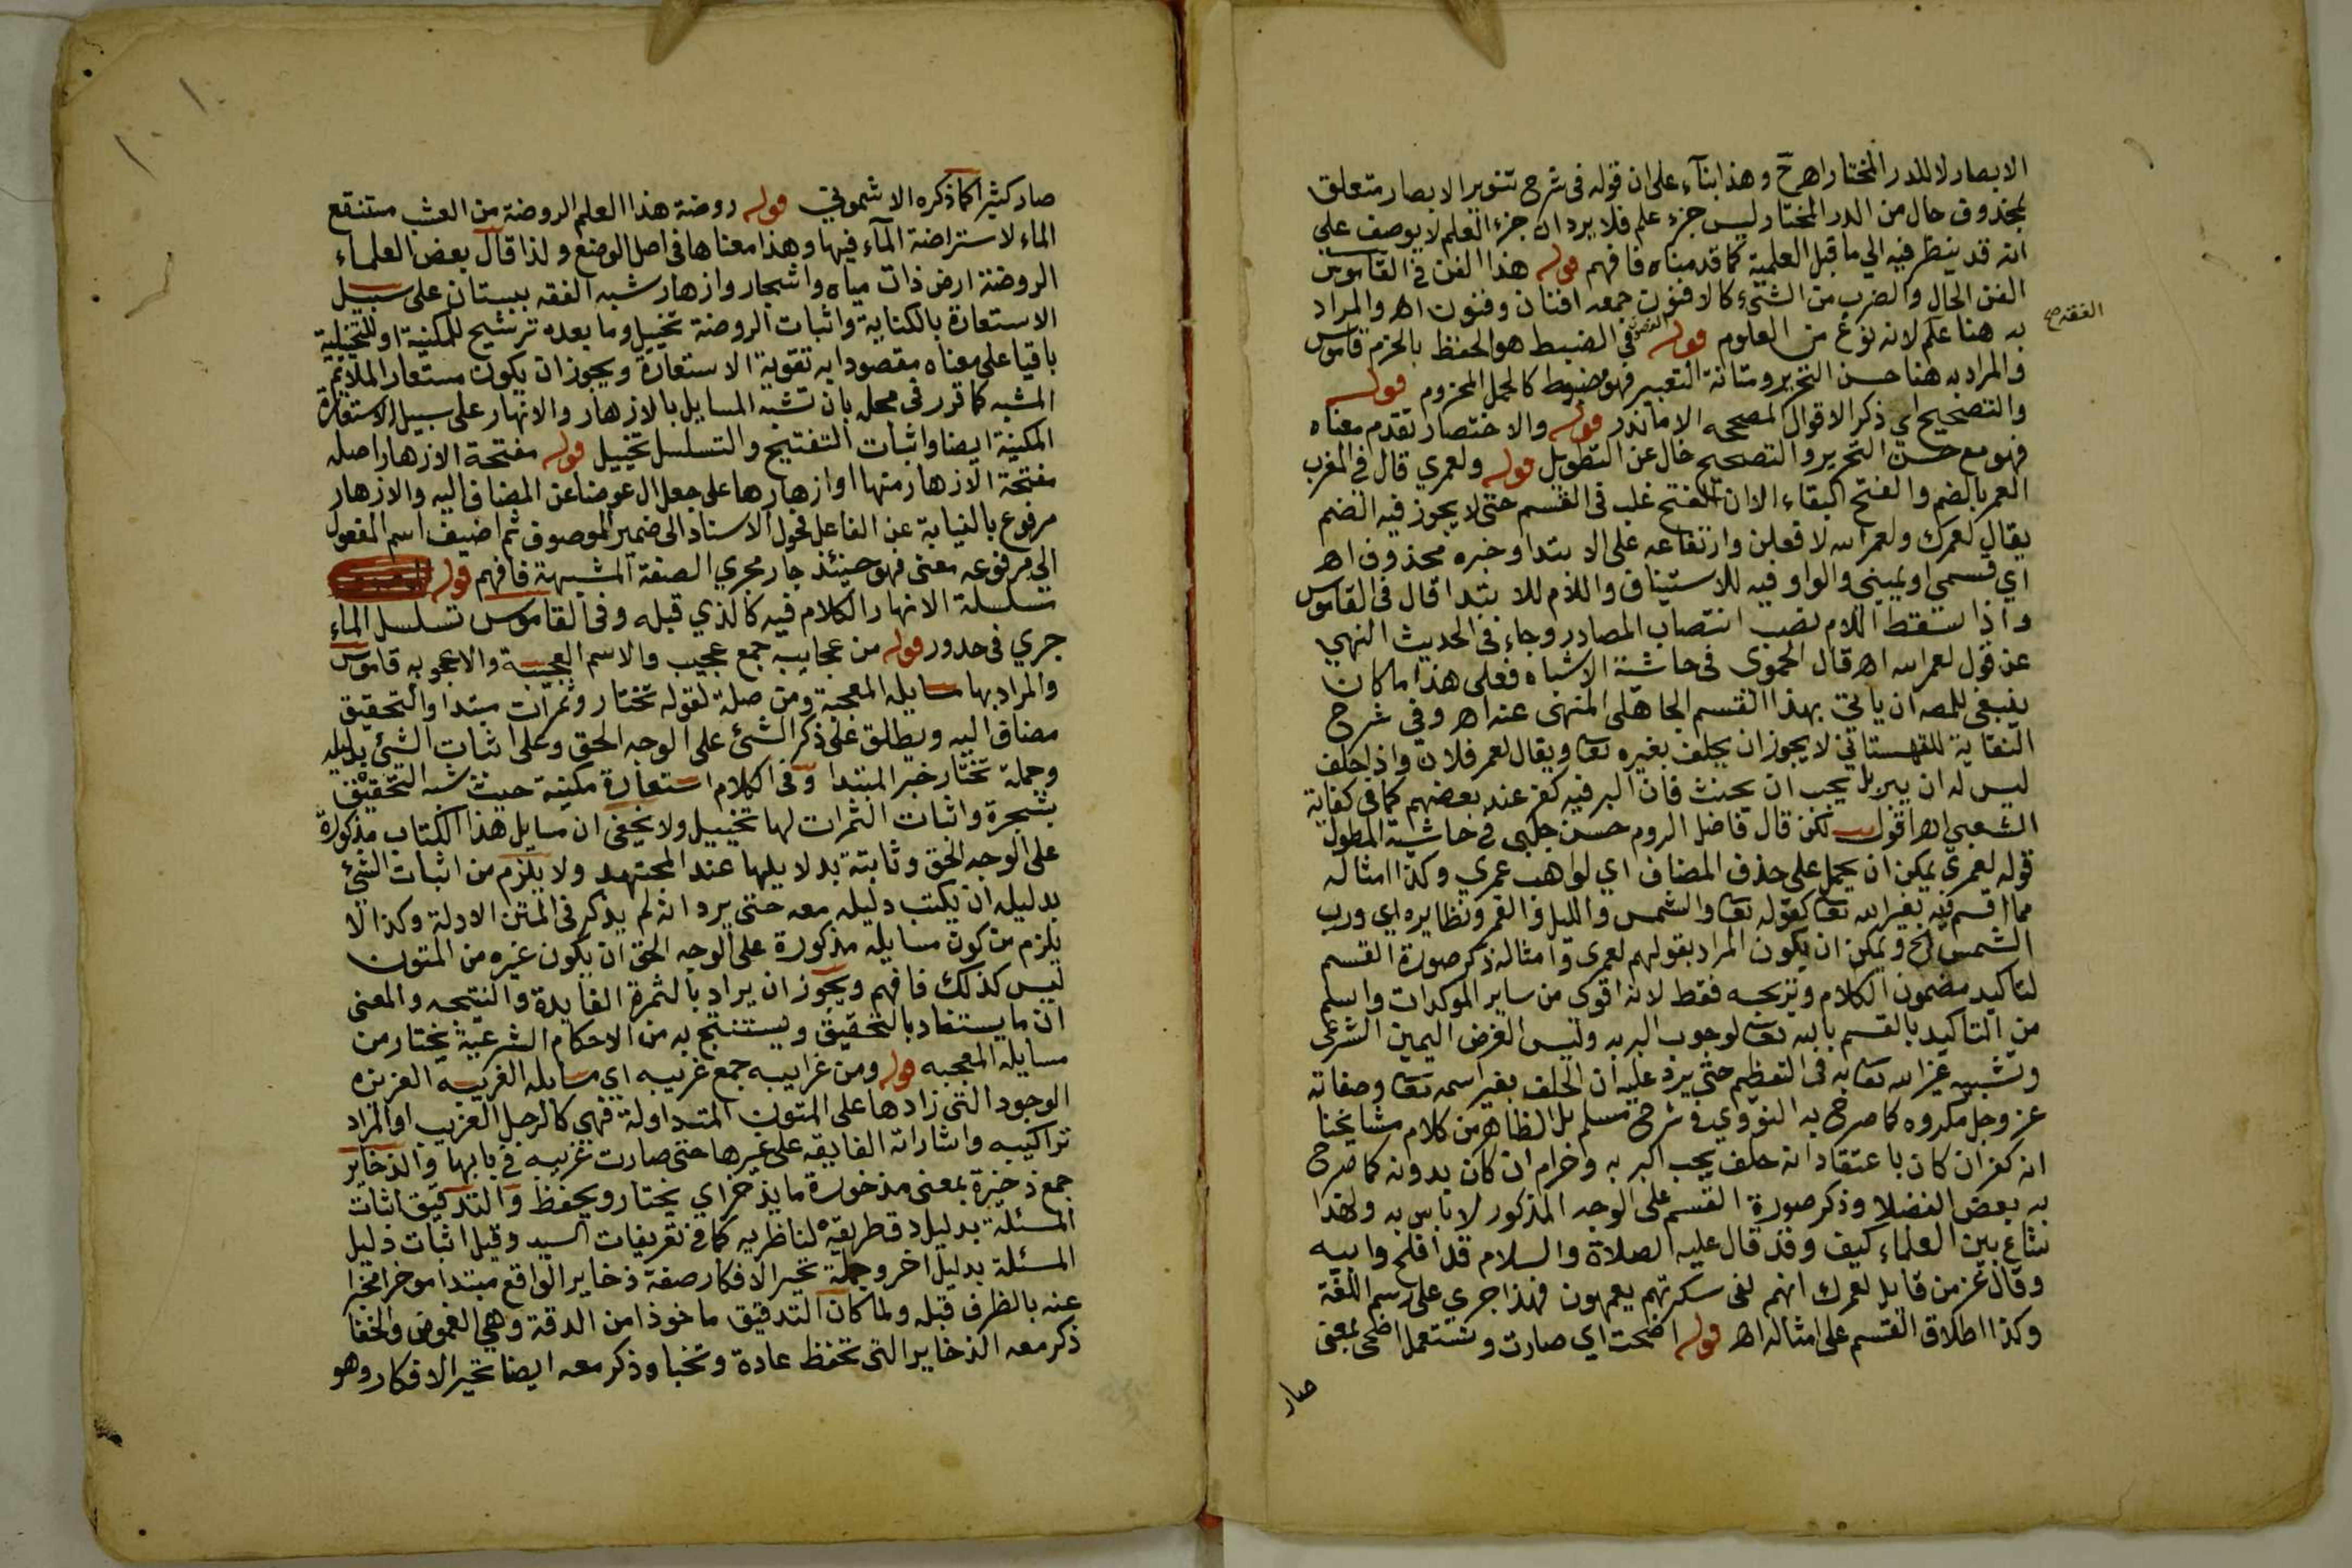 الابصار لا للدر المختار اهـ ح وهذا بنآء على ان قوله فى شرح تنوير الابصار متعلق
بمحذوف حال من الدر المختار ليس جزء علم فلا يرد ان جزء العلم لا يوصف على
انه قد ينظر فيه الي ما قبل العلمية كما قدمناه فافهم قوله هذا الفن في القاموس
الفن الحال والضرب من الشيء كالافنون جمعه افنان وفنون اهـ والمراد
به هنا علم لانه نوع من العلوم قوله في الضبط هو الحفظ بالحزم قاموس
الفقه صح
والمراد به هنا حسن التحرير ومتانة التعبير فهو مضبوط كالحمل المحزوم قوله
والتصحيح اي ذكر الاقوال المصححه الا ما ندر قوله والاختصار تقدم معناه
فهو مع حسن التحرير والتصحيح خال عن التطويل قوله ولعمري قال في المغرب
العمر بالضم والفتح البقاء الا ان الفتح غلب فى القسم حتى لا يجوز فيه الضم
يقال لعمرك ولعمر الله لافعلن وارتفاعه على الابتدا وخبره محذوف اهـ
اي قسمي او يميني والواو فيه للاستيناف واللام للابتدا قال فى القاموس
واذا سقط اللام نصب انتصاب المصادر وجاء فى الحديث النهي
عن قول لعمر الله اهـ قال الحموى فى حاشية الاشباه فعلى هذا ما كان
ينبغي للمصـ ان ياتي بهذا القسم الجاهلى المنهى عنه اهـ وفي شرح
النقاية للقهستاني لا يجوز ان يحلف بغيره تعا ويقال لعمر فلان واذا حلف
ليس له ان يبر بل يجب ان يحنث فان البر فيه كفر عند بعضهم كما فى كفاية
الشعبي اهـ اقول لكن قال فاضل الروم حسن جلبى في حاشية المطول
قوله لعمري يمكن ان يحمل على حذف المضاف اي لواهب عمري وكذا امثاله
مما اقسم فيه بغير الله تعا كقوله تعا والشمس والليل والقمر ونظايره اي ورب
الشمس الخ ويمكن ان يكون المراد بقولهم لعمرى وامثاله ذكر صورة القسم
لتاكيد مضمون الكلام وترويجه فقط لانه اقوى من ساير الموكدات واسلم
من التاكيد بالقسم بالله تعا لوجوب البر به وليس الغرض اليمين الشرعى
وتشبيه غير الله تعا به فى التعظيم حتى يرد عليه ان الحلف بغير اسمه تعا وصفاته
عز وجل مكروه كما صرح به النووي فى شرح مسلم بل الظاهر من كلام مشايخنا
انه كفر ان كان باعتقاد انه حلف يجب البر به وحرام ان كان بدونه كما صرح
به بعض الفضلا وذكر صورة القسم على الوجه المذكور لا باس به ولهذا
شاع بين العلماء كيف وقد قال عليه الصلاة والسلام قد افلح وابيه
وقال عز من قايل لعمرك انهم لفى سكرتهم يعمهون فهذا جري على رسم اللغة
وكذا اطلاق القسم على امثاله اهـ قوله اضحت اي صارت وتستعمل اضحى بمعنى
صار
صار كثيرا كما ذكره الاشموني قوله روضة هذا العلم الروضة من العشب مستنقع
الماء لاستراضة المآء فيها وهذا معناها فى اصل الوضع ولذا قال بعض العلماء
الروضة ارض ذات مياه واشجار وازهار شبه الفقه ببستان على سبيل
الاستعارة بالكناية واثبات الروضة تخييل وما بعده ترشيح للمكنية او للتخيلية
باقيا على معناه مقصودا به تقوية الاستعارة ويجوز ان يكون مستعار الملايم
المشبه كما قرر فى محله بان تشبه المسايل بالازهار والانهار على سبيل الاستعارة
المكنية ايضا واثبات التفتيح والتسلسل تخييل قوله مفتحة الازهار اصله
مفتحة الازهار منها او ازهارها على جعل ال عوضا عن المضاف اليه والازهار
مرفوع بالنيابة عن الفاعل فحول الاسناد الى ضمير الموصوف ثم اضيف اسم المفعول
الى مرفوعه معنى فهو حينئذ جار مجري الصفة المشبهة فافهم قوله
تسلسلة الانهار الكلام فيه كالذي قبله وفى القاموس تسلسل الماء
جري فى حدور قوله من عجايبه جمع عجيب والاسم العجيبة والاعجوبه قاموس
والمراد بها مسايله المعجبة ومن صلة لقوله تختار وثمرات مبتدا والتحقيق
مضاف اليه ويطلق على ذكر الشئ على الوجه الحق وعلى اثبات الشئ بدليله
وجملة تختار خبر المبتدا وفى الكلام استعارة مكنية حيث شبه التحقيق
بشجرة واثبات الثمرات لها تخييل ولا يخفى ان مسايل هذا الكتاب مذكورة
على الوجه الحق وثابتة بدلايلها عند المجتهد ولا يلزم من اثبات الشئ
بدليله ان يكتب دليله معه حتى يرد انه لم يذكر فى المتن الادلة وكذا لا
يلزم من كون مسايله مذكورة على الوجه الحق ان يكون غيره من المتون
ليس كذلك فافهم ويجوز ان يراد بالثمرة الفايدة والنتيجه والمعنى
ان ما يستفاد بالتحقيق ويستنتج به من الاحكام الشرعية يختار من
مسايله المعجبه قوله ومن غرايبه جمع غريبه اي مسايله الغريبه العزيزه
الوجود التى زادها على المتون المتداولة فهي كالرجل الغريب او المراد
تراكيبه واشاراته الفايقه على غيرها حتى صارت غريبه في بابها والذخاير
جمع ذخيرة بمعنى مذخورة ما يذخر اي يختار ويحفظ والتدقيق اثبات
المسئلة بدليل دق طريقه لناظريه كما في تعريفات السيد وقيل اثبات دليل
المسئلة بدليل اخر وجملة تحير الافكار صفة ذخاير الواقع مبتدا موخرا مخبرا
عنه بالظرف قبله ولما كان التدقيق ماخوذا من الدقة وهي الغموض والخفا
ذكر معه الذخاير التى تحفظ عادة وتخبا وذكر معه ايضا تحير الافكار وهو